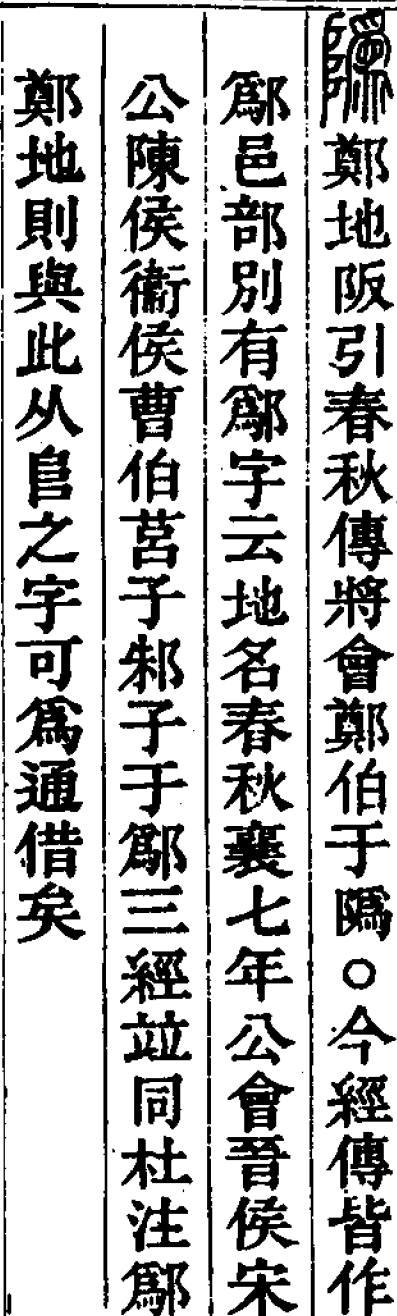 隵鄭地阪引春秋傳將會鄭伯于隵○今經傳皆作
鄬邑部別有鄬字云地名春秋襄七年公會晉侯宋
公陳侯衞侯曹伯莒子邾子于鄬三經竝同杜注鄬
鄭地則與此从𨸏之字可爲通借矣